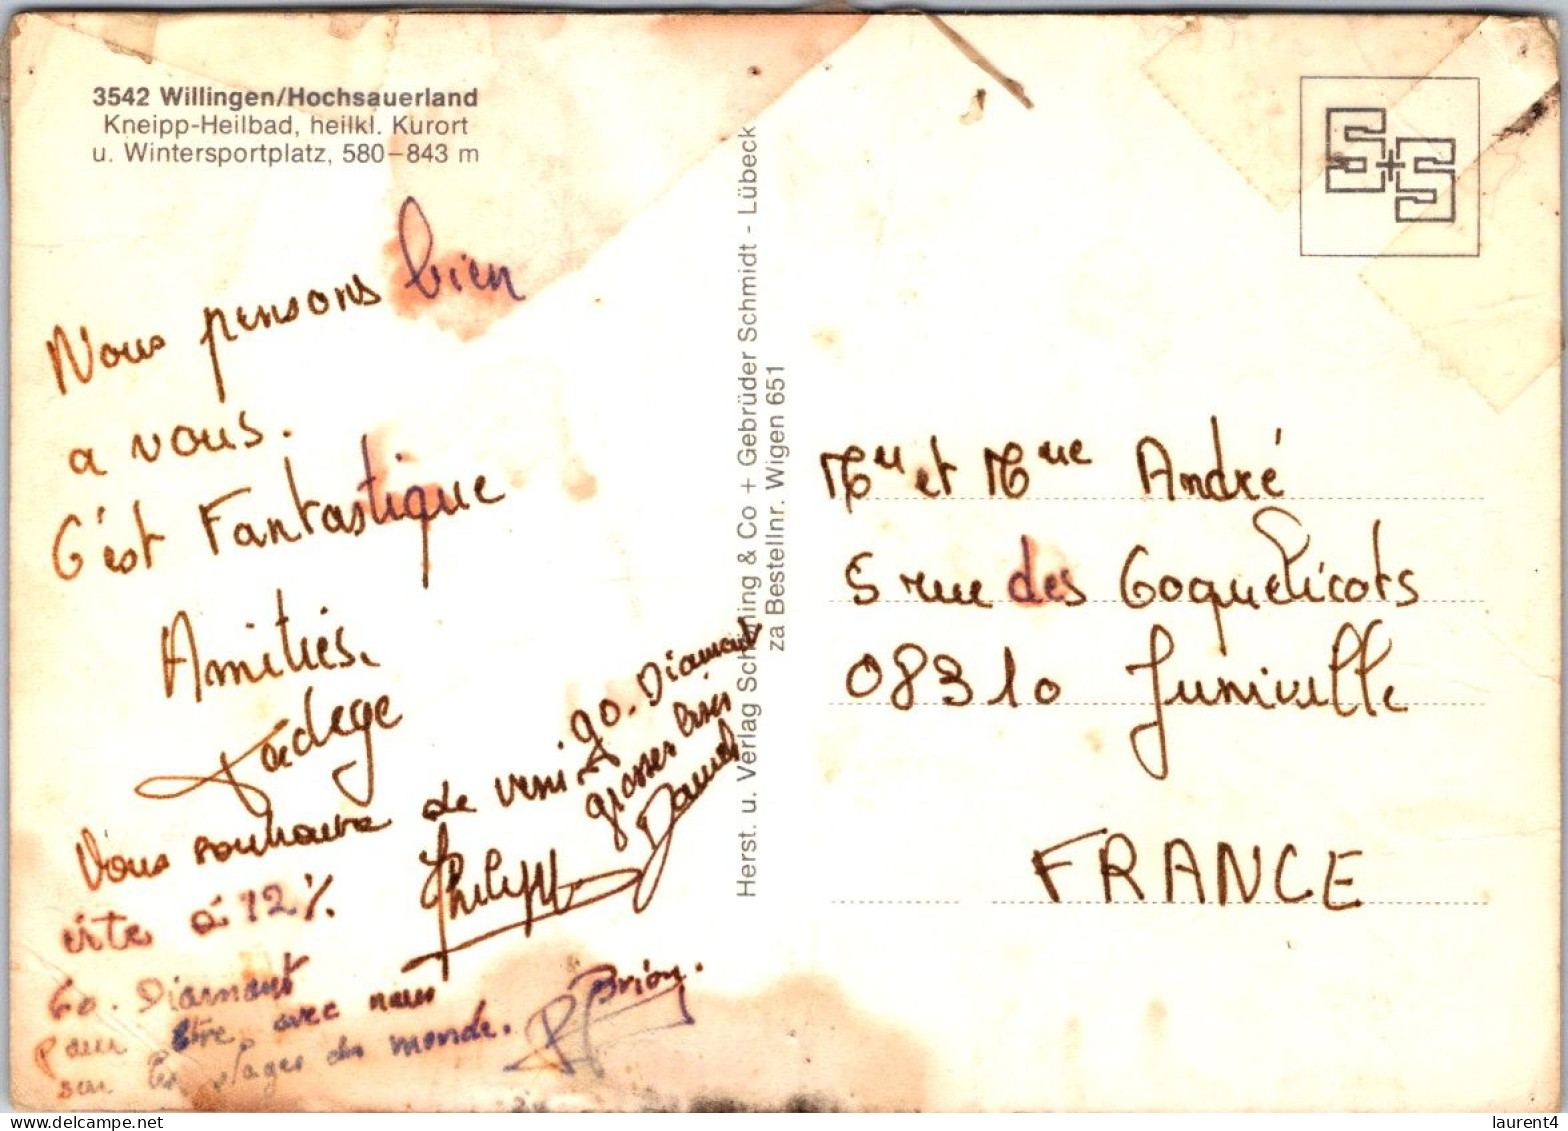 3542 Willingen/Hochsauerland
Kneipp-Heilbad, heilkl. Kurort
u. Wintersportplatz, 580–843 m
Nous pensons bien
a vous.
C'est Fantastique
Amitiés.
Nadège
Vous souhaite de venir
vite à 12%
Go. Diamant
pour être avec nous
sur les plages du monde.
go. Diamant
grosses bises
Daniel
Philippe
Brion.
Herst. u. Verlag Schöning & Co + Gebrüder Schmidt - Lübeck
za Bestellnr. Wigen 651
S+S
Mr et Mme André
5 rue des Coquelicots
08310 Juniville
FRANCE
www.delcampe.net
laurent4